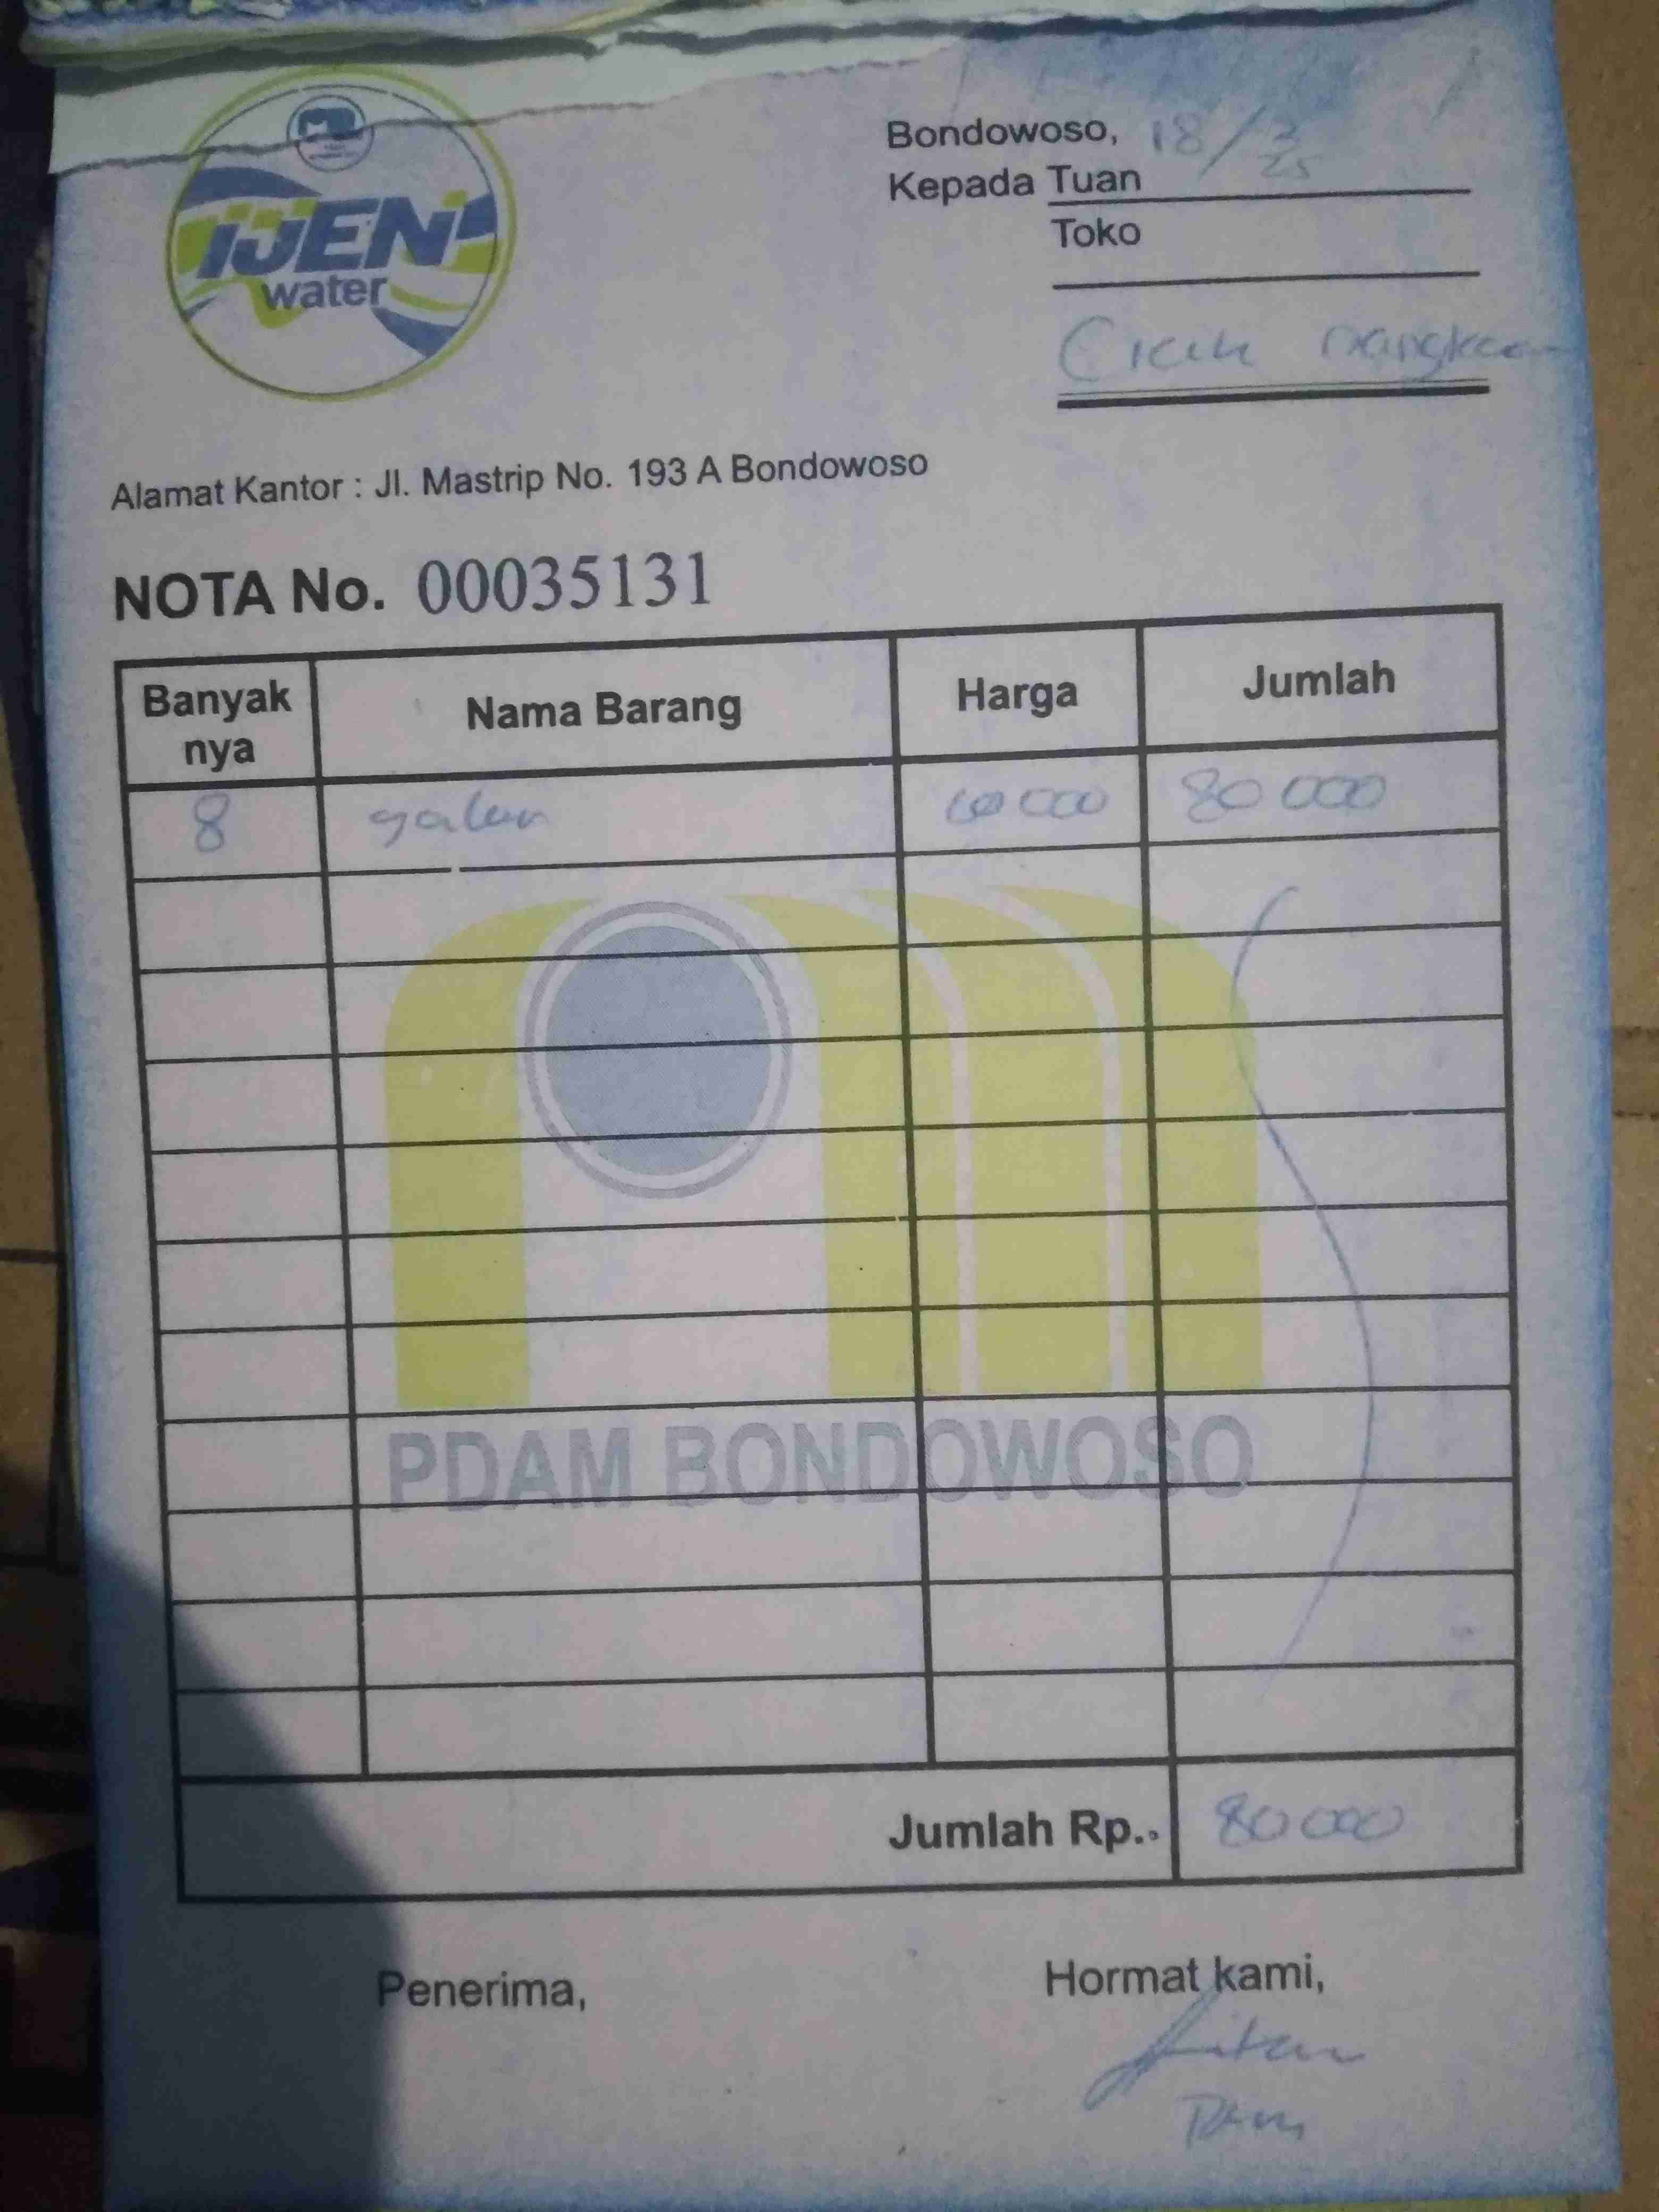 IJEN
water
Bondowoso, 18/3
25
Kepada Tuan
Toko
Cicik nangkaan
Alamat Kantor : Jl. Mastrip No. 193 A Bondowoso
NOTA No. 00035131
Banyak nya Nama Barang Harga Jumlah
8 galon 10 000 80 000
PDAM BONDOWOSO
Jumlah Rp.. 80 000
Penerima, Hormat kami,